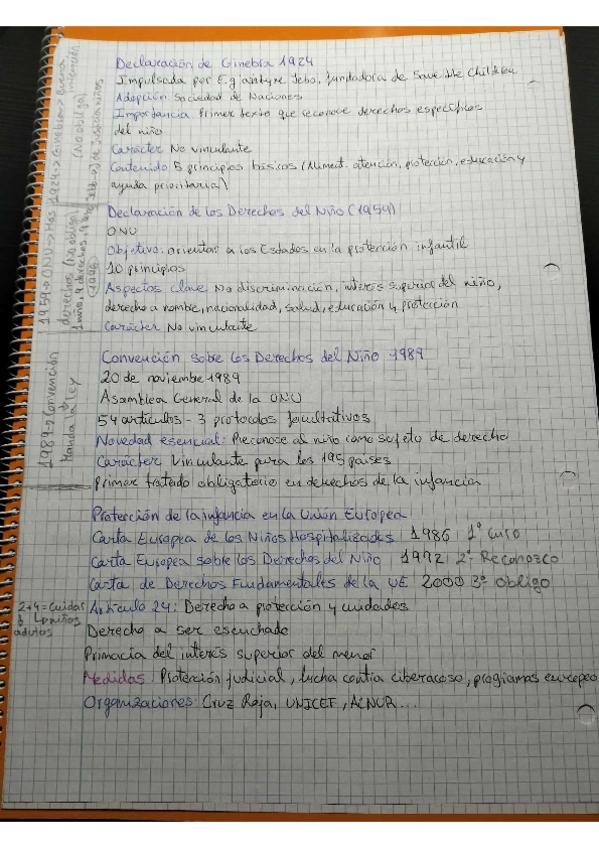 Declaración de Ginebra 1924
Impulsada por Eglantyne Jebb, fundadora de Save the Children
Adopción Sociedad de Naciones
Importancia Primer texto que reconoce derechos específicos
del niño
Carácter No vinculante
Contenido 5 principios básicos (Aliment. atención, protección, educación y
ayuda prioritaria)
Declaración de los Derechos del Niño (1959)
ONU
Objetivo: orientar a los Estados en la protección infantil
10 principios
Aspectos clave No discriminación, interés superior del niño,
derecho a nombre, nacionalidad, salud, educación y protección
Carácter No vinculante
Convención sobre los Derechos del Niño 1989
20 de noviembre 1989
Asamblea General de la ONU
54 artículos - 3 protocolos facultativos
Novedad esencial: Reconoce al niño como sujeto de derecho
Carácter Vinculante para los 195 países
Primer tratado obligatorio en derechos de la infancia
Protección de la infancia en la Unión Europea
Carta Europea de los Niños Hospitalizados 1986 1º curo
Carta Europea sobre los Derechos del Niño 1992 2º Reconozco
Carta de Derechos Fundamentales de la UE 2000 3º Obligo
Artículo 24: Derecho a protección y cuidados
Derecho a ser escuchado
Primacía del interés superior del menor
Medidas: Protección judicial, lucha contra ciberacoso, programas europeo
Organizaciones: Cruz Roja, UNICEF, ACNUR...
1924 -> Ginebra -> Buena
intención
(No obliga)
1959 -> ONU -> Más
derechos (No obliga)
1 niño, 9 derechos
1989 -> Convención
Manda la ley
2+4 = Cuidas
niños